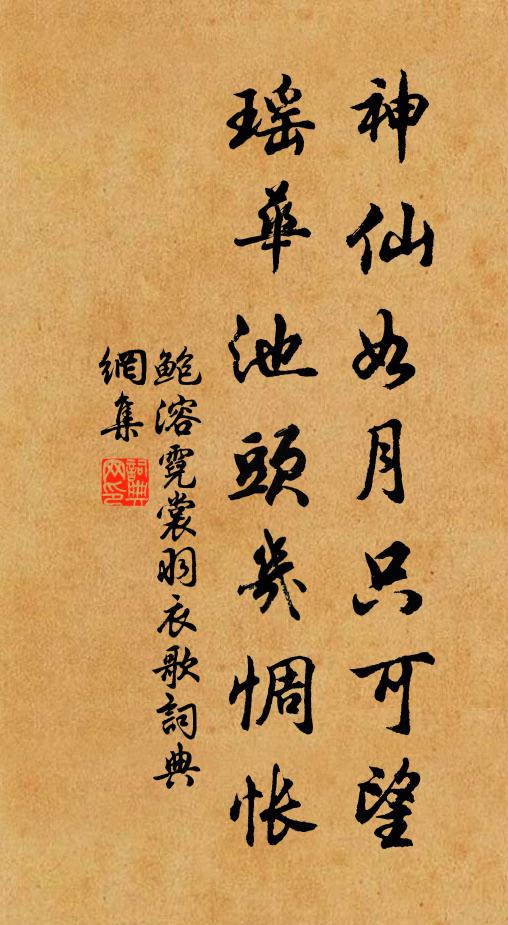 神仙如月只可望
瑶華池頭幾惆怅
鲍溶霓裳羽衣歌詞典
網集
詞典
网印